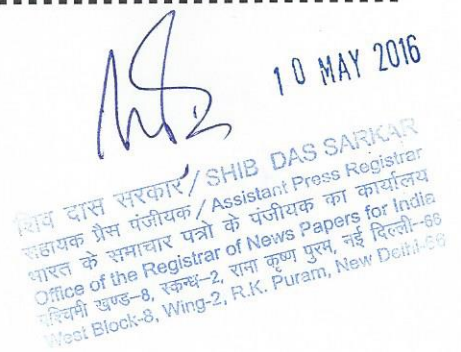 10 MAY 2016
शिव दास सरकार / SHIB DAS SARKAR
सहायक प्रैस पंजीयक / Assistant Press Registrar
भारत के समाचार पत्रों के पंजीयक का कार्यालय
Office of the Registrar of News Papers for India
पश्चिमी खण्ड–8, स्कन्ध–2, रामा कृष्ण पुरम, नई दिल्ली–66
West Block-8, Wing-2, R.K. Puram, New Delhi-66